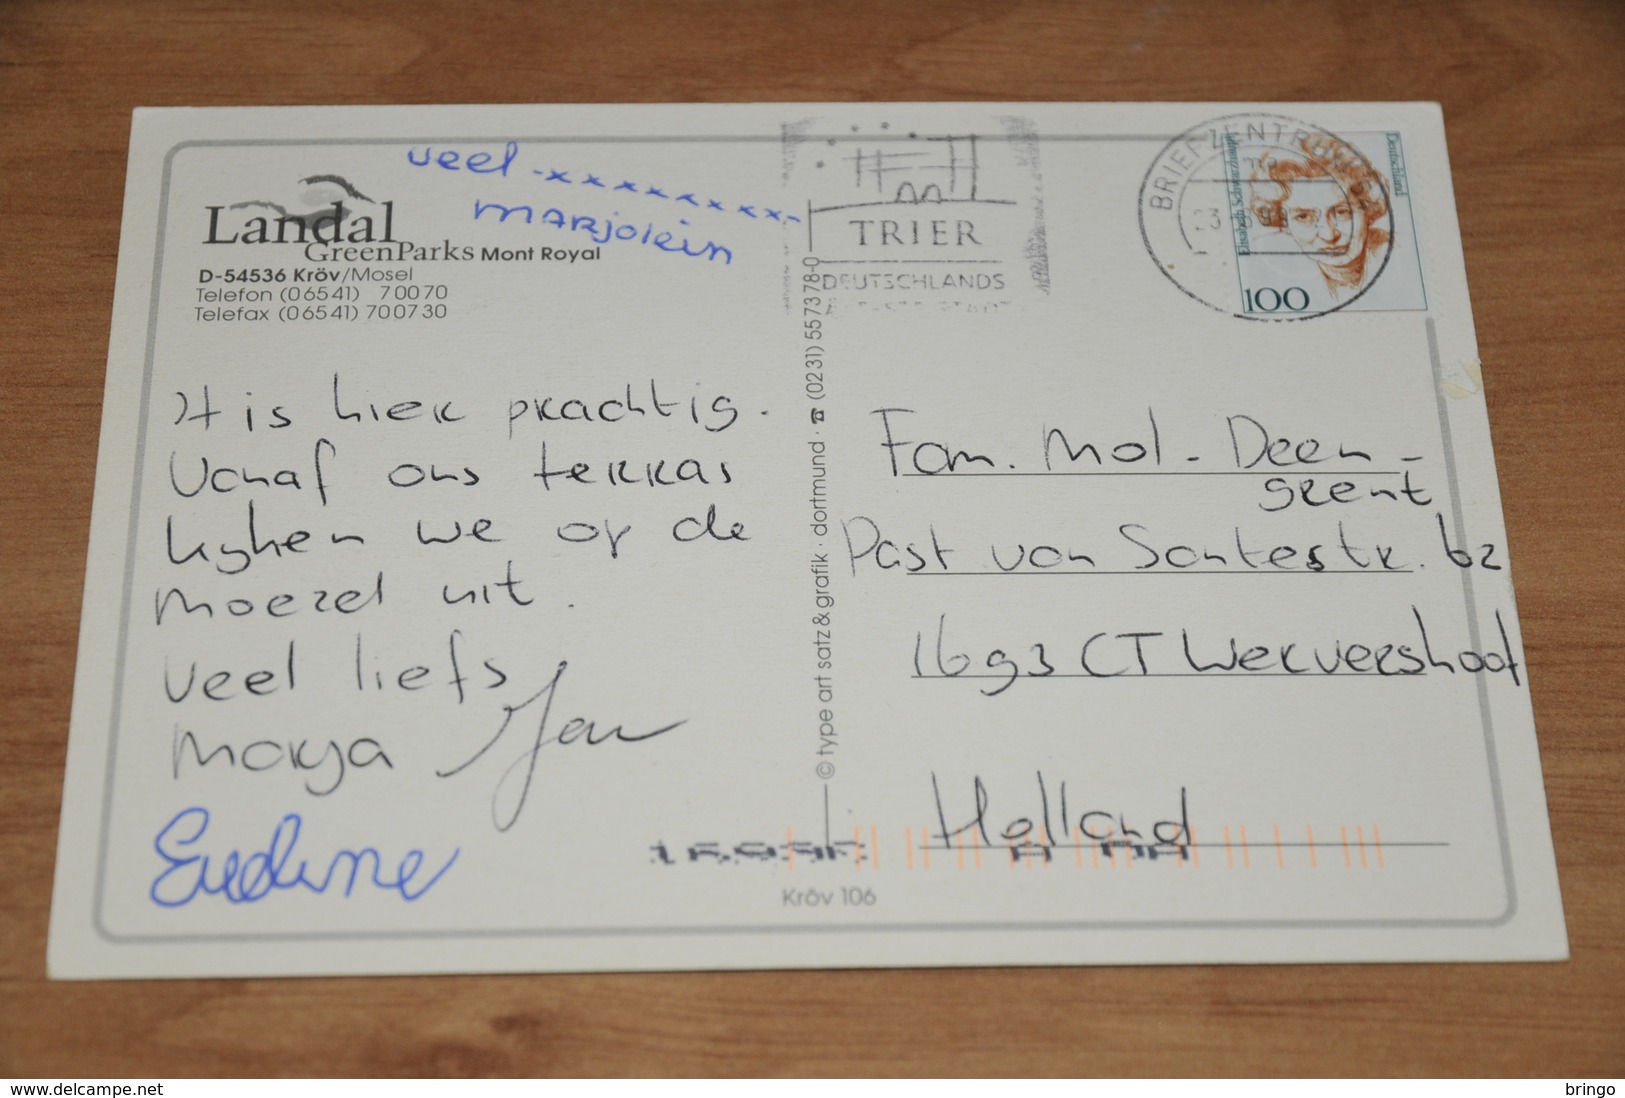 veel -xxxxxxxxx-
marjolein
Landal
GreenParks Mont Royal
D-54536 Kröv/Mosel
Telefon (06541) 70070
Telefax (06541) 700730
TRIER
DEUTSCHLANDS
BRIEFZENTRUM
Deutschland
Elisabeth Schwarzhaupt
100
Het is hier prachtig.
Vanaf ons terras
kijken we op de
Moezel uit.
Veel liefs
Marja Jan
Eveline
© type art satz & grafik · dortmund · ☎ (0231) 557378-0
Fam. Mol - Deen -
grent
Past van Santestr. 62
1693 CT Wervershoof
Holland
Kröv 106
www.delcampe.net
bringo